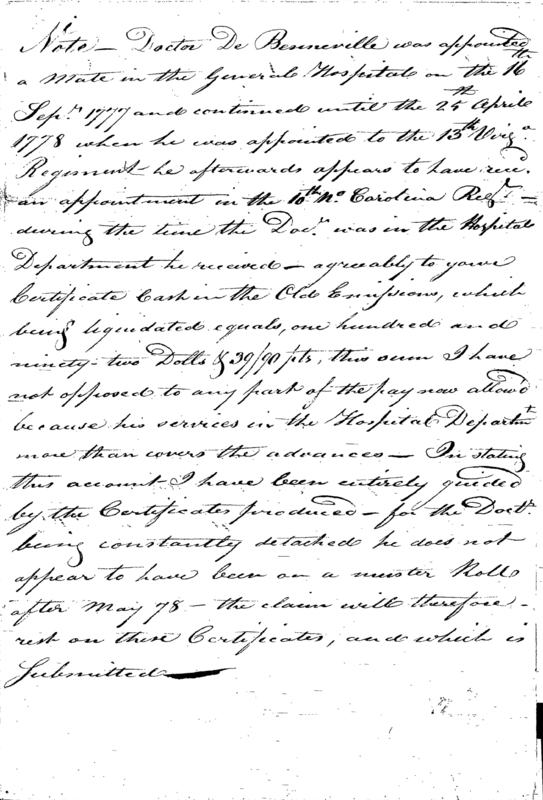 Note — Doctor De Benneville was appointed
a Mate in the General Hospital on the 16th
Sepr. 1777 and continued until the 25th April
1778 when he was appointed to the 13th Virga
Regiment — he afterwards appears to have recd.
an appointment in the 10th No. Carolina Regt. —
during the time the Docr. was in the Hospital
Department he received — agreeably to your
Certificate Cash in the Old Emissions, which
being liquidated equals, one hundred and
ninety-two Dolls & 39/90 pts, this sum I have
not opposed to any part of the pay now allow'd
because his services in the Hospital Departmt
more than covers the advances — In stating
this account I have been entirely guided
by the Certificates produced — for the Doctr.
being constantly detached he does not
appear to have been on a muster Roll
after May 78 — the claim will therefore
rest on these Certificates, and which is
Submitted —